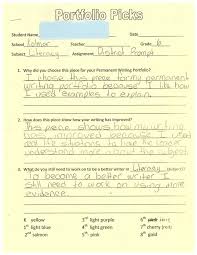 Portfolio Picks
Student Name Date
School Kolmar Teacher Grade 6
Subject Literacy Assignment District Prompt
1. Why did you choose this piece for your Permanent Writing Portfolio?
I chose this piece for my permanent
writing portfolio because I like how
I used examples to explain.
2. How has your writing improved?
This piece shows how my writing
has improved because I used
real life situations to have the reader
understand more about the object
3. What do you still need to work on to be a better writer in Literacy
To become a better writer I
still need to work on using more
evidence.
K yellow 3rd light green 6th
1st light blue 4th green 7th light purple
2nd salmon 5th pink 8th grey